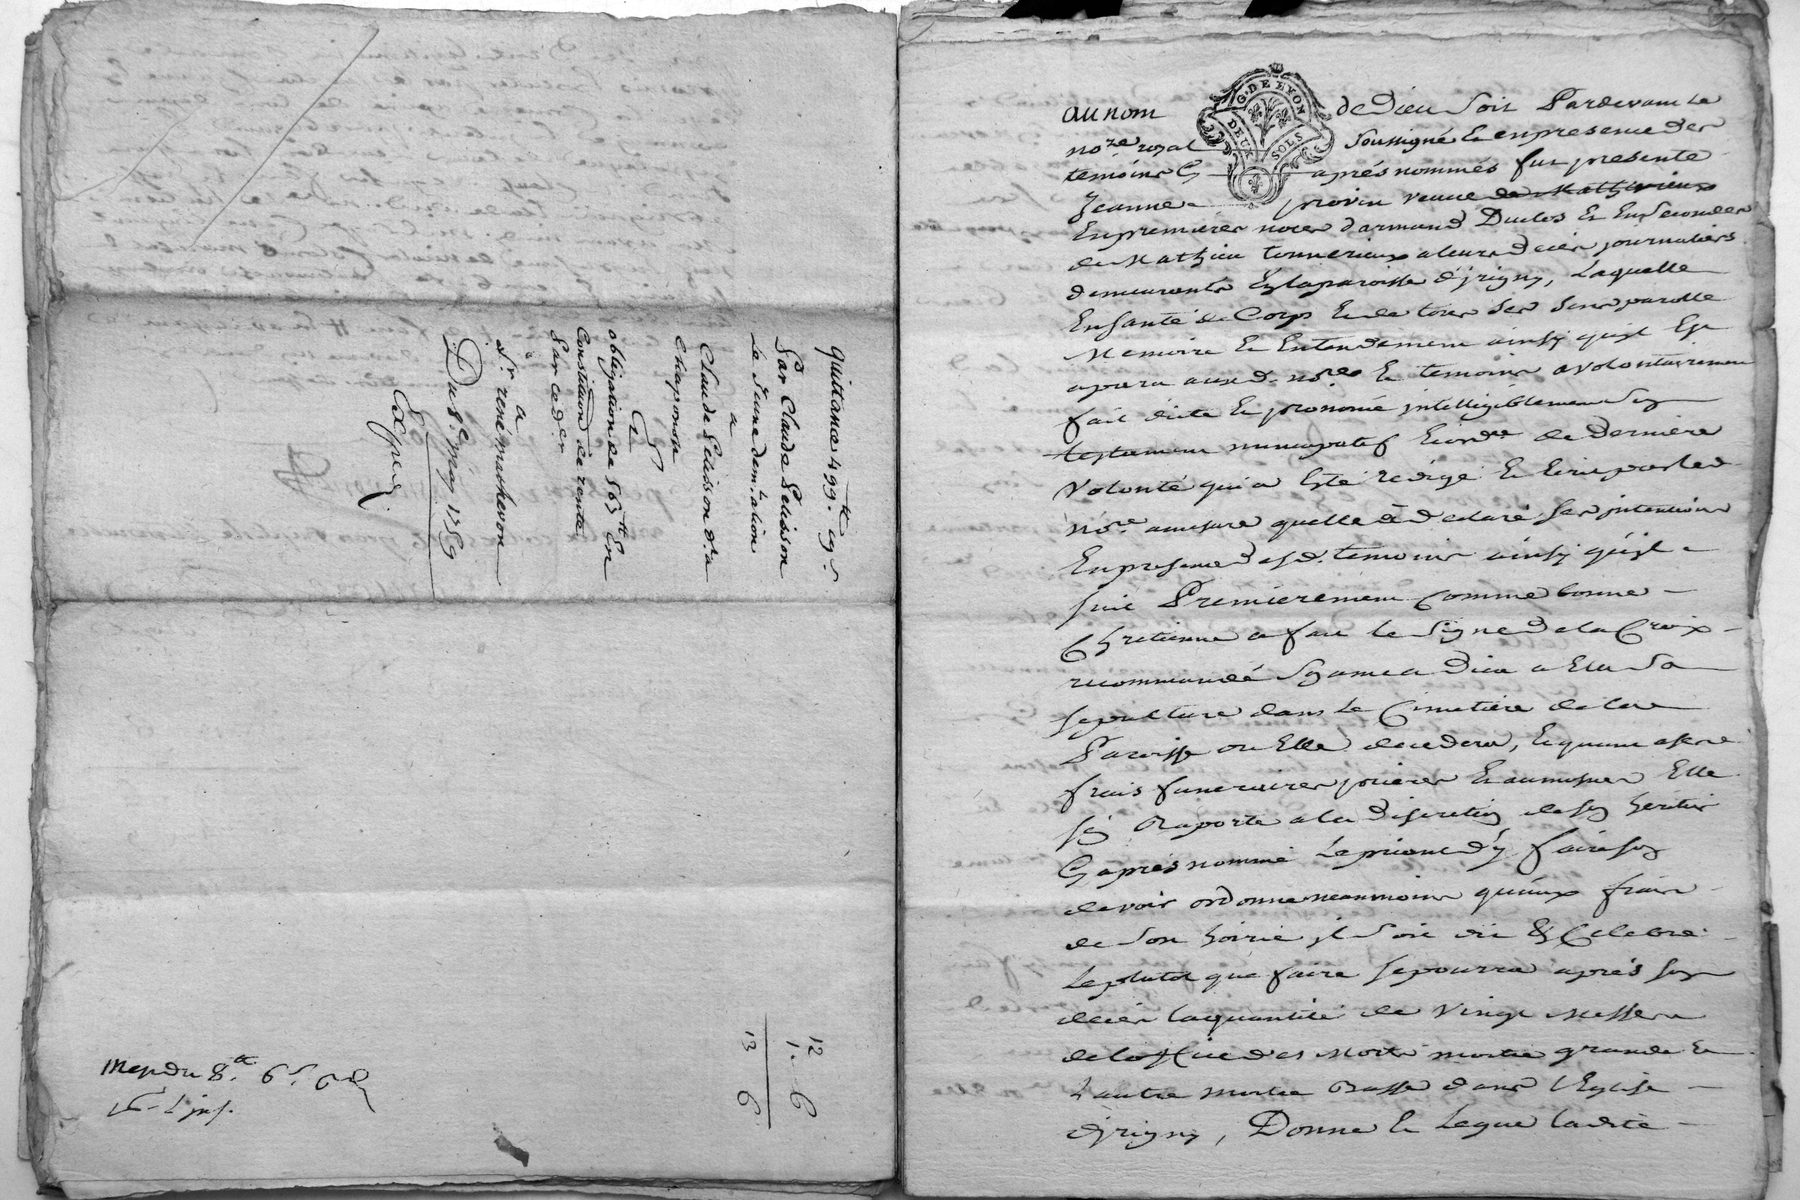 quittance 499.tt 19.s
Par Claude Pelisson
La Jeune dem.t a lion
a
Claude Pelisson d.t a
Chaponost
Et
obligation de 563.tt En
Constitution de rente
Par led.
a
S.r rené marhevon
Du 8.e may 1759
Exped.
12
1 - 6
13 6
au nom de Dieu soit Pardevant Le
no.re royal soussigné Et en presence des
temoins Cy après nommés fut presente
Jeanne provin veuve de Mathivieux
En premieres noces d'armand Duclos Et En secondes
de Mathieu tonnerieux a leurs deces journaliers
demeurants En la paroisse d'jrigny, Laquelle
En santé de Corps Et de tous ses sens parolle
Memoire Et Entendement ainsy qu'il Est
aparu aux d. no.re Et temoins a volontairement
fait dicté Et prononcé jntelligiblement son
testament nuncupatif Et ord.re de derniere
volonté qui a Esté redigé Et Ecrit par led.
no.re amesure quelle a declaré ses jntentions
En presence desd. temoins ainsy qu'il
suit Premierement Comme bonne
Chretienne a fait le signe de la Croix
recommandé son ame a Dieu a Elu sa
sepulture dans Le Cimetiere de la
Paroisse ou Elle decedera, Et quant a ses
frais funeraires prieres Et aumosnes Elle
s'en raporte a la discretion de son heritier
Cy après nommé Le priant d'y faire son
devoir ordonne neanmoins qu'aux frais
de son hoirie jl soit dit Et Celebré
Le plutot que faire se pourra après son
deces la quantité de vingt Messes
de loffice des Morts moitié grande Et
L'autre moitié Basse dans l'Eglise
d'jrigny, Donne Et Legue ladite
G. DE LYON
DEUX SOLS